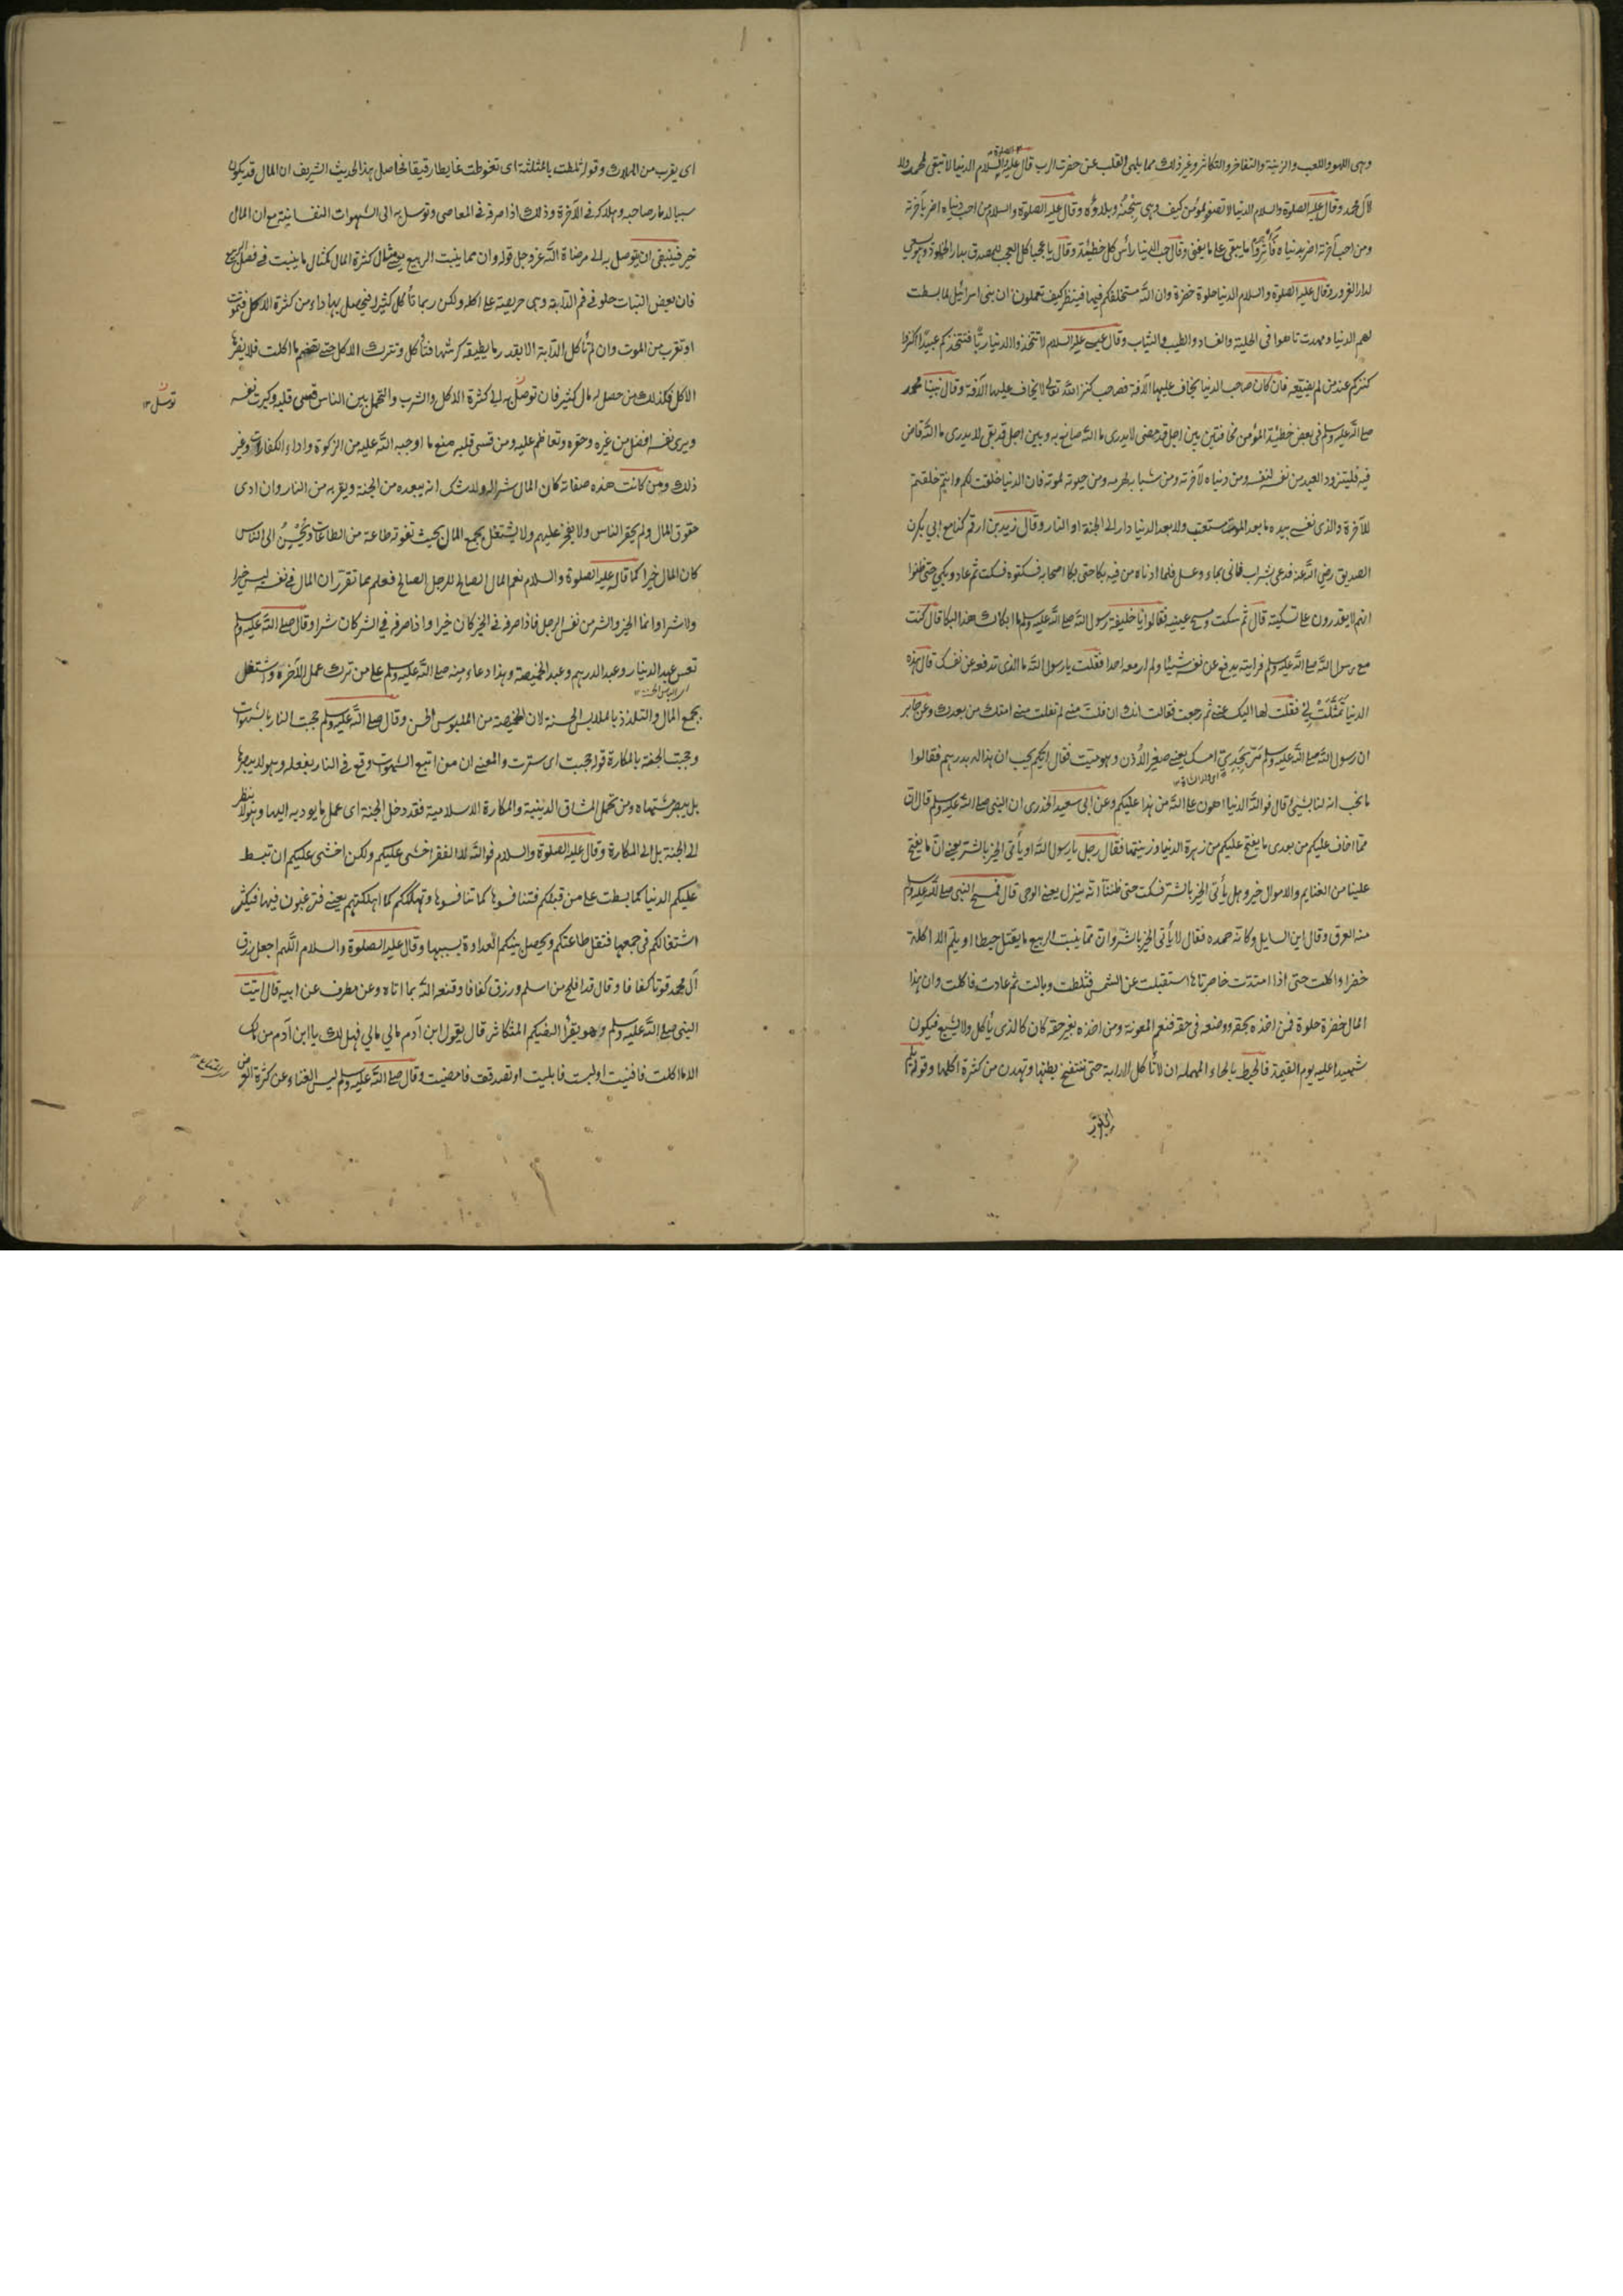 وهى اللهو واللعب والزينة والتفاخر والتكاثر وغير ذلك مما يلهى القلب عن حضرت الرب قال عليه الصلوة والسلام الدنيا لا تبقى لمحمد ولا
لآل محمد وقال عليه الصلوة والسلام الدنيا لا تصفو لمؤمن كيف وهى سجنه وبلاؤه وقال عليه الصلوة والسلام من احب دنياه اضر بآخرته
ومن احب آخرته اضر بدنياه فآثروا ما يبقى على ما يفنى وقال حب الدنيا رأس كل خطيئة وقال يا عجبا كل العجب للمصدق بدار الخلود وهو يسعى
لدار الغرور وقال عليه الصلوة والسلام الدنيا حلوة خضرة وان الله مستخلفكم فيها فينظر كيف تعملون ان بنى اسرائيل لما بسطت
لهم الدنيا ومهدت تاهوا فى الحلية والنساء والطيب والثياب وقال عيسى عليه السلام لا تتخذوا الدنيا ربًّا فتتخذكم عبيدًا اكنزوا
كنزكم عند من لم يضيعه فان كان صاحب الدنيا يخاف عليها الآفة فصاحب كنز الله تعالى لا يخاف عليها الآفة وقال نبينا محمد
صلى الله عليه وسلم فى بعض خطبه المؤمن بين مخافتين بين اجل قد مضى لا يدرى ما الله صانع به وبين اجل قد بقى لا يدرى ما الله قاض
فيه فليتزود العبد من نفسه لنفسه ومن دنياه لآخرته ومن شبابه لهرمه ومن حيوته لموته فان الدنيا خلقت لكم وانتم خلقتم
للآخرة والذى نفسى بيده ما بعد الموت مستعتب ولا بعد الدنيا دار الى الجنة او النار وقال زيد بن ارقم كنا مع ابي بكرن
الصديق رضي الله عنه فدعى بشراب فاتى بماء وعسل فلما ادناه من فيه بكا حتى بكا اصحابه فسكتوه فسكت ثم عاد وبكى حتى ظنوا
انهم لا يقدرون على تسكيته قال ثم سكت ومسح عينيه فقالوا يا خليفة رسول الله صلى الله عليه وسلم ما ابكاك هذا البكا قال كنت
مع رسول الله صلى الله عليه وسلم فرايته يدفع عن نفسه شيئا ولم ار معه احدا فقلت يا رسول الله ما الذى تدفعه عن نفسك قال هذه
الدنيا تمثلت لي فقلت لها اليك عنى ثم رجعت فقالت انك ان فلت منى لم تفلت منى امتك من بعدك وعن جابر
ان رسول الله صلى الله عليه وسلم مر بجدي اسك يعنى صغير الأذن وهو ميت فقال ايكم يحب ان هذا له بدرهم فقالوا
ما نحب انه لنا بشئ قال فوالله الدنيا اهون على الله من هذا عليكم وعن ابى سعيد الخدرى ان النبى صلى الله عليه وسلم قال ان
مما اخاف عليكم من بعدى ما يفتح عليكم من زهرة الدنيا وزينتها فقال رجل يا رسول الله او يأتى الخير بالشر يعنى ان ما يفتح
علينا من الغنايم والاموال خير وهل يأتى الخير بالشر فسكت حتى ظننا انه ينزل يعنى الوحى قال فمسح النبى صلى الله عليه وسلم
منه العرق وقال اين السايل وكانه حمده فقال لا يأتى الخير بالشر وان مما ينبت الربيع ما يقتل حبطا او يلم الا اكلة
خضرا واكلت حتى اذا امتدت خاصرتاها استقبلت عن الشمس فثلطت وبالت ثم عادت فاكلت وان هذا
المال خضرة حلوة فمن اخذه بحقه ووضعه فى حقه فنعم المعونة ومن اخذه بغير حقه كان كالذى يأكل ولا يشبع فيكون
شهيدا عليه يوم القيمة فالحبط بالحاء المهملة ان لا تأكل الدابة حتى تنتفخ بطنها وتهدن من كثرة اكلها وقوله يلم
اى يقرب
اى يقرب من الهلاك وقوله ثلطت بالمثلثة اى تغوطت غايطا رقيقا فحاصل هذا الحديث الشريف ان المال قد يكون
سببا لدمار صاحبه وهلاكه فى الآخرة وذلك اذا صرفه فى المعاصى وتوسل به الى الشهوات النفسانية مع ان المال
خير فينبغى ان يتوصل به الى مرضاة الله عز وجل قوله وان مما ينبت الربيع يعنى مثال كثرة المال كمثال ما ينبت فى فصل الربيع
فان بعض النبات حلو فى فم الدابة وهى حريصة على اكله ولكن ربما تأكل كثيرا فيحصل بها داء من كثرة الاكل فتموت
او تقرب من الموت وان لم تأكل الدابة الا بقدر ما يطيقه كرشها فتأكل وتترك الاكل حتى تهضم ما اكلت فلا يضرها
الاكل فكذلك من حصل له مال كثير فان توصل به الى كثرة الاكل والشرب والتجمل بين الناس قسى قلبه وكبرت نفسه
توسل ١٢
ويرى نفسه افضل من غيره وحقره وتعاظم عليه ومن قسى قلبه منع ما اوجبه الله عليه من الزكوة واداء الكفارات وغير
ذلك ومن كانت هذه صفاته كان المال شرا له ولا شك انه يبعده من الجنة ويقربه من النار وان ادى
حقوق المال ولم يحقر الناس ولا يفخر عليهم ولا يشتغل بجمع المال بحيث تفوته طاعة من الطاعات ويحسن الى الناس
كان المال خيرا كما قال عليه الصلوة والسلام نعم المال الصالح للرجل الصالح فعلم مما تقرر ان المال فى نفسه ليس خيرا
ولا شرا وانما الخير والشر من نفس الرجل فاذا صرفه فى الخير كان خيرا واذا صرفه في الشر كان شرا وقال صلى الله عليه وسلم
تعس عبد الدينار وعبد الدرهم وعبد الخميصة وهذا دعاء منه صلى الله عليه وسلم على من ترك عمل الآخرة واشتغل
بجمع المال والتلذذ بالملابس الحسنة لان الخميصة من الملبوس الحسن وقال صلى الله عليه وسلم حجبت النار بالشهوات
وحجبت الجنة بالمكارة قوله حجبت اى سترت والمعنى ان من اتبع الشهوات وقع فى النار بفعله وهو لا يبصرها
بل يبصر مشتهاه ومن تحمل المشاق الدينية والمكارة الاسلامية فقد دخل الجنة اى عمل ما يوديه اليها وهو لا ينظر
الى الجنة بل الى المكارة وقال عليه الصلوة والسلام فوالله لا الفقر اخشى عليكم ولكن اخشى عليكم ان تبسط
عليكم الدنيا كما بسطت على من قبلكم فتنافسوها كما تنافسوها وتهلككم كما اهلكتهم يعنى فترغبون فيها فيكثر
اشتغالكم فى جمعها فتقل طاعتكم ويحصل بينكم العداوة بسببها وقال عليه الصلوة والسلام اللهم اجعل رزق
آل محمد قوتا كفافا وقال قد افلح من اسلم ورزق كفافا وقنعه الله بما اتاه وعن مطرف عن ابيه قال اتيت
النبى صلى الله عليه وسلم وهو يقرأ الهيكم التكاثر قال يقول ابن آدم مالي مالي فهل لك يا ابن آدم من مالك
الا ما اكلت فافنيت او لبست فابليت او تصدقت فامضيت وقال صلى الله عليه وسلم ليس الغناء عن كثرة العرض